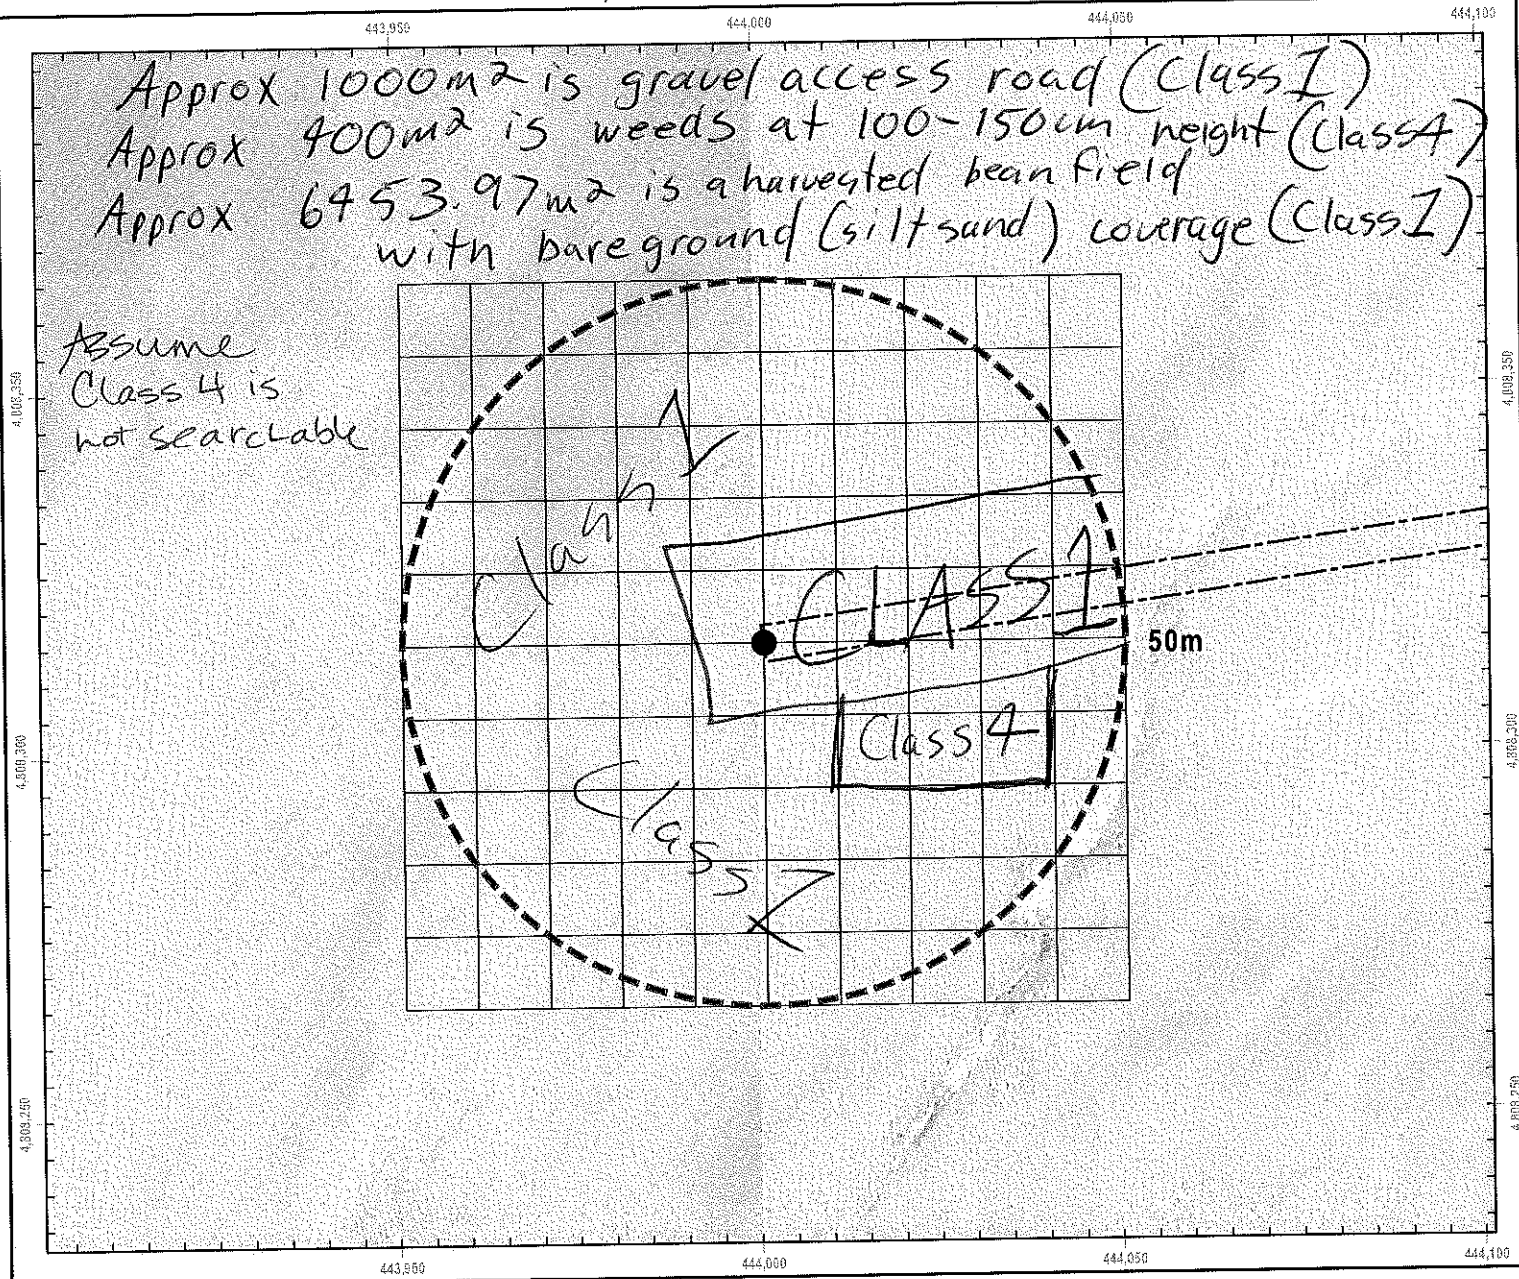 443,950 444,000 444,050 444,100
Approx 1000m² is gravel access road (Class 1)
Approx 400m² is weeds at 100-150cm height (Class 4)
Approx 6453.97m² is a harvested bean field
with bare ground (silt sand) coverage (Class 1)
Assume
Class 4 is
not searchable
4,808,350
4,808,350
Class 1
CLASS 1
50m
Class 4
Class 1
4,808,300
4,808,300
4,808,250
4,808,250
443,950 444,000 444,050 444,100